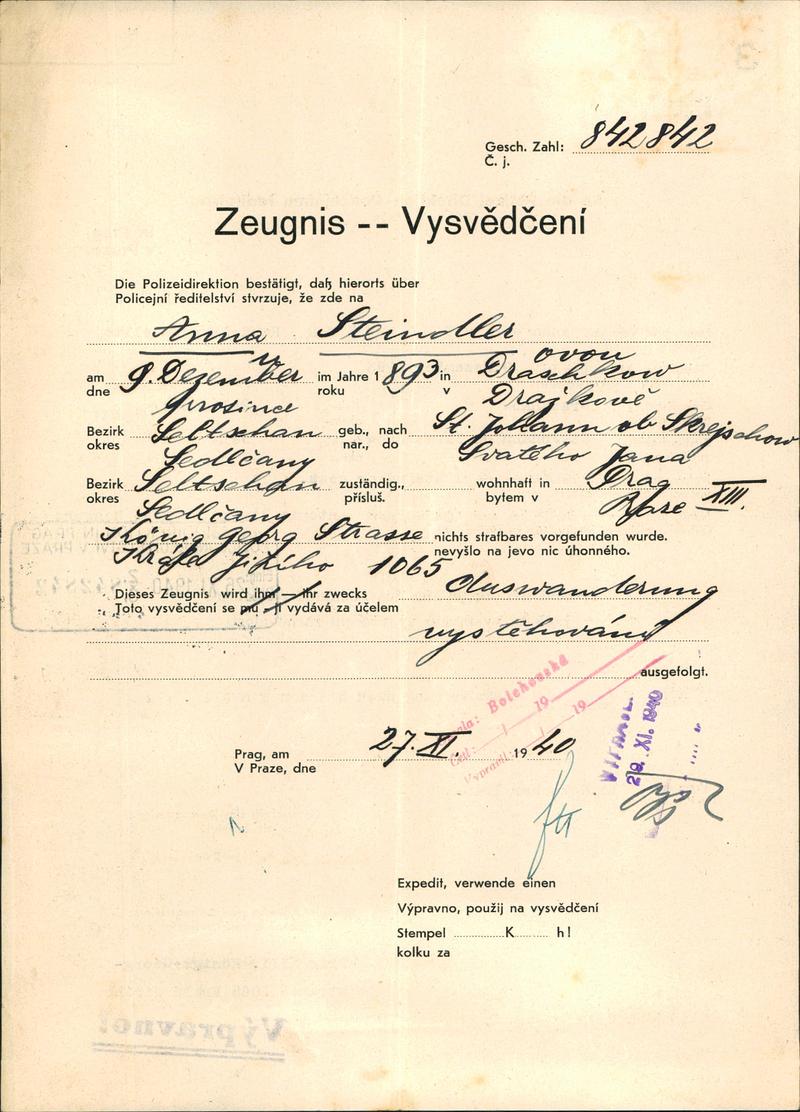 Gesch. Zahl: 842842
Č. j.
Zeugnis -- Vysvědčení
Die Polizeidirektion bestätigt, daß hierorts über
Policejní ředitelství stvrzuje, že zde na
Anna Steindler
ovou
am 9. Dezember im Jahre 1893 in Draschkow
dne prosince roku v Drajkově
Bezirk Seltschan geb., nach St. Johann ob Skrejschow
okres Sedlčany nar., do Svatého Jana
Bezirk Seltschan zuständig., wohnhaft in Prag XIII.
okres Sedlčany přísluš. bytem v Praze
König Georg Strasse nichts strafbares vorgefunden wurde.
Krále Jiřího 1065 nevyšlo na jevo nic úhonného.
Dieses Zeugnis wird ihm — ihr zwecks Auswanderung
Toto vysvědčení se mu — jí vydává za účelem
vystěhování
ausgefolgt.
Bolehovská
19
19
Vypravil:
29. XI. 1940
Prag, am 27. XI. 1940
V Praze, dne
Expedit, verwende einen
Výpravno, použij na vysvědčení
Stempel K h!
kolku za
Výpravno!